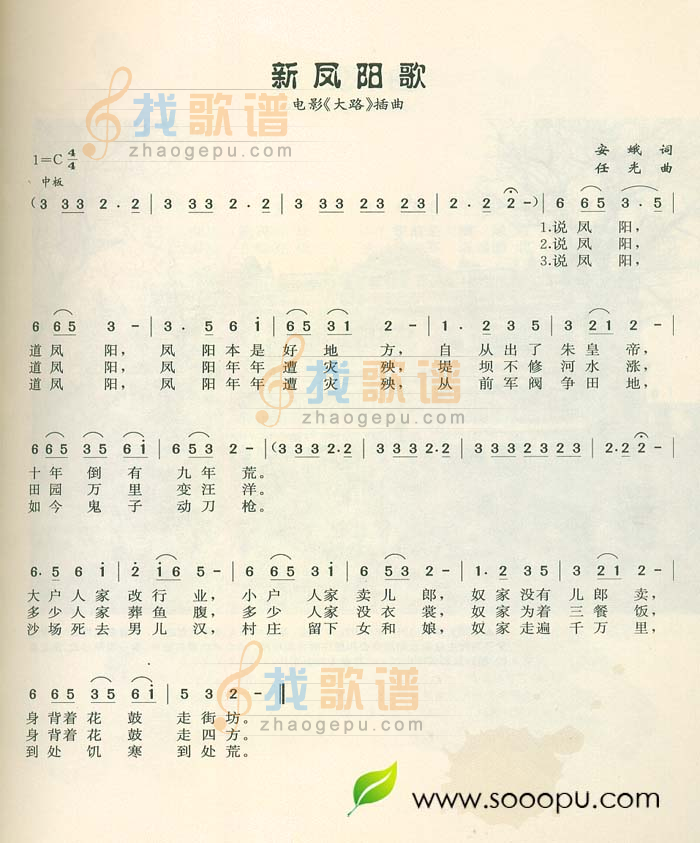 新凤阳歌
电影《大路》插曲
找歌谱
zhaogepu.com
1=C 4/4
安 娥 词
任 光 曲
中板
(3 33 33 2.2 | 3 33 33 2.2 | 3 33 33 23 23 | 2.2 2 2 -) | 6 65 3.5 |
1.说凤 阳,
2.说凤 阳,
3.说凤 阳,
6 65 3 - | 3.5 6 i | 65 31 2 - | 1. 2 35 | 3 21 2 - |
道凤 阳, 凤 阳本是好地 方, 自 从出了朱皇帝,
道凤 阳, 凤 阳年年遭灾 殃, 堤 坝不修河水涨,
道凤 阳, 凤 阳年年遭灾 殃, 从 前军阀争田地,
找歌谱
zhaogepu.com
6 65 35 6i | 65 3 2 - | (3 33 33 2.2 | 3 33 33 2.2 | 3 33 33 23 23 | 2.2 2 2 -) |
十年 倒有 九年 荒。
田园 万里 变汪 洋。
如今 鬼子 动刀 枪。
6. 5 6 i | 2 i6 5 - | 6 65 3 1 | 6 53 2 - | 1.2 35 | 3 21 2 - |
大户人家 改行 业, 小户 人家卖儿 郎, 奴家没有 儿郎 卖,
多少人家 葬鱼 腹, 多少 人家没衣 裳, 奴家为着 三餐 饭,
沙场死去 男儿 汉, 村庄 留下女和 娘, 奴家走遍 千万 里,
6 65 35 6i | 5 3 2 - ‖
身背着花 鼓 走街坊。
身背着花 鼓 走四方。
到处 饥 寒 到处荒。
找歌谱
zhaogepu.com
www.sooopu.com